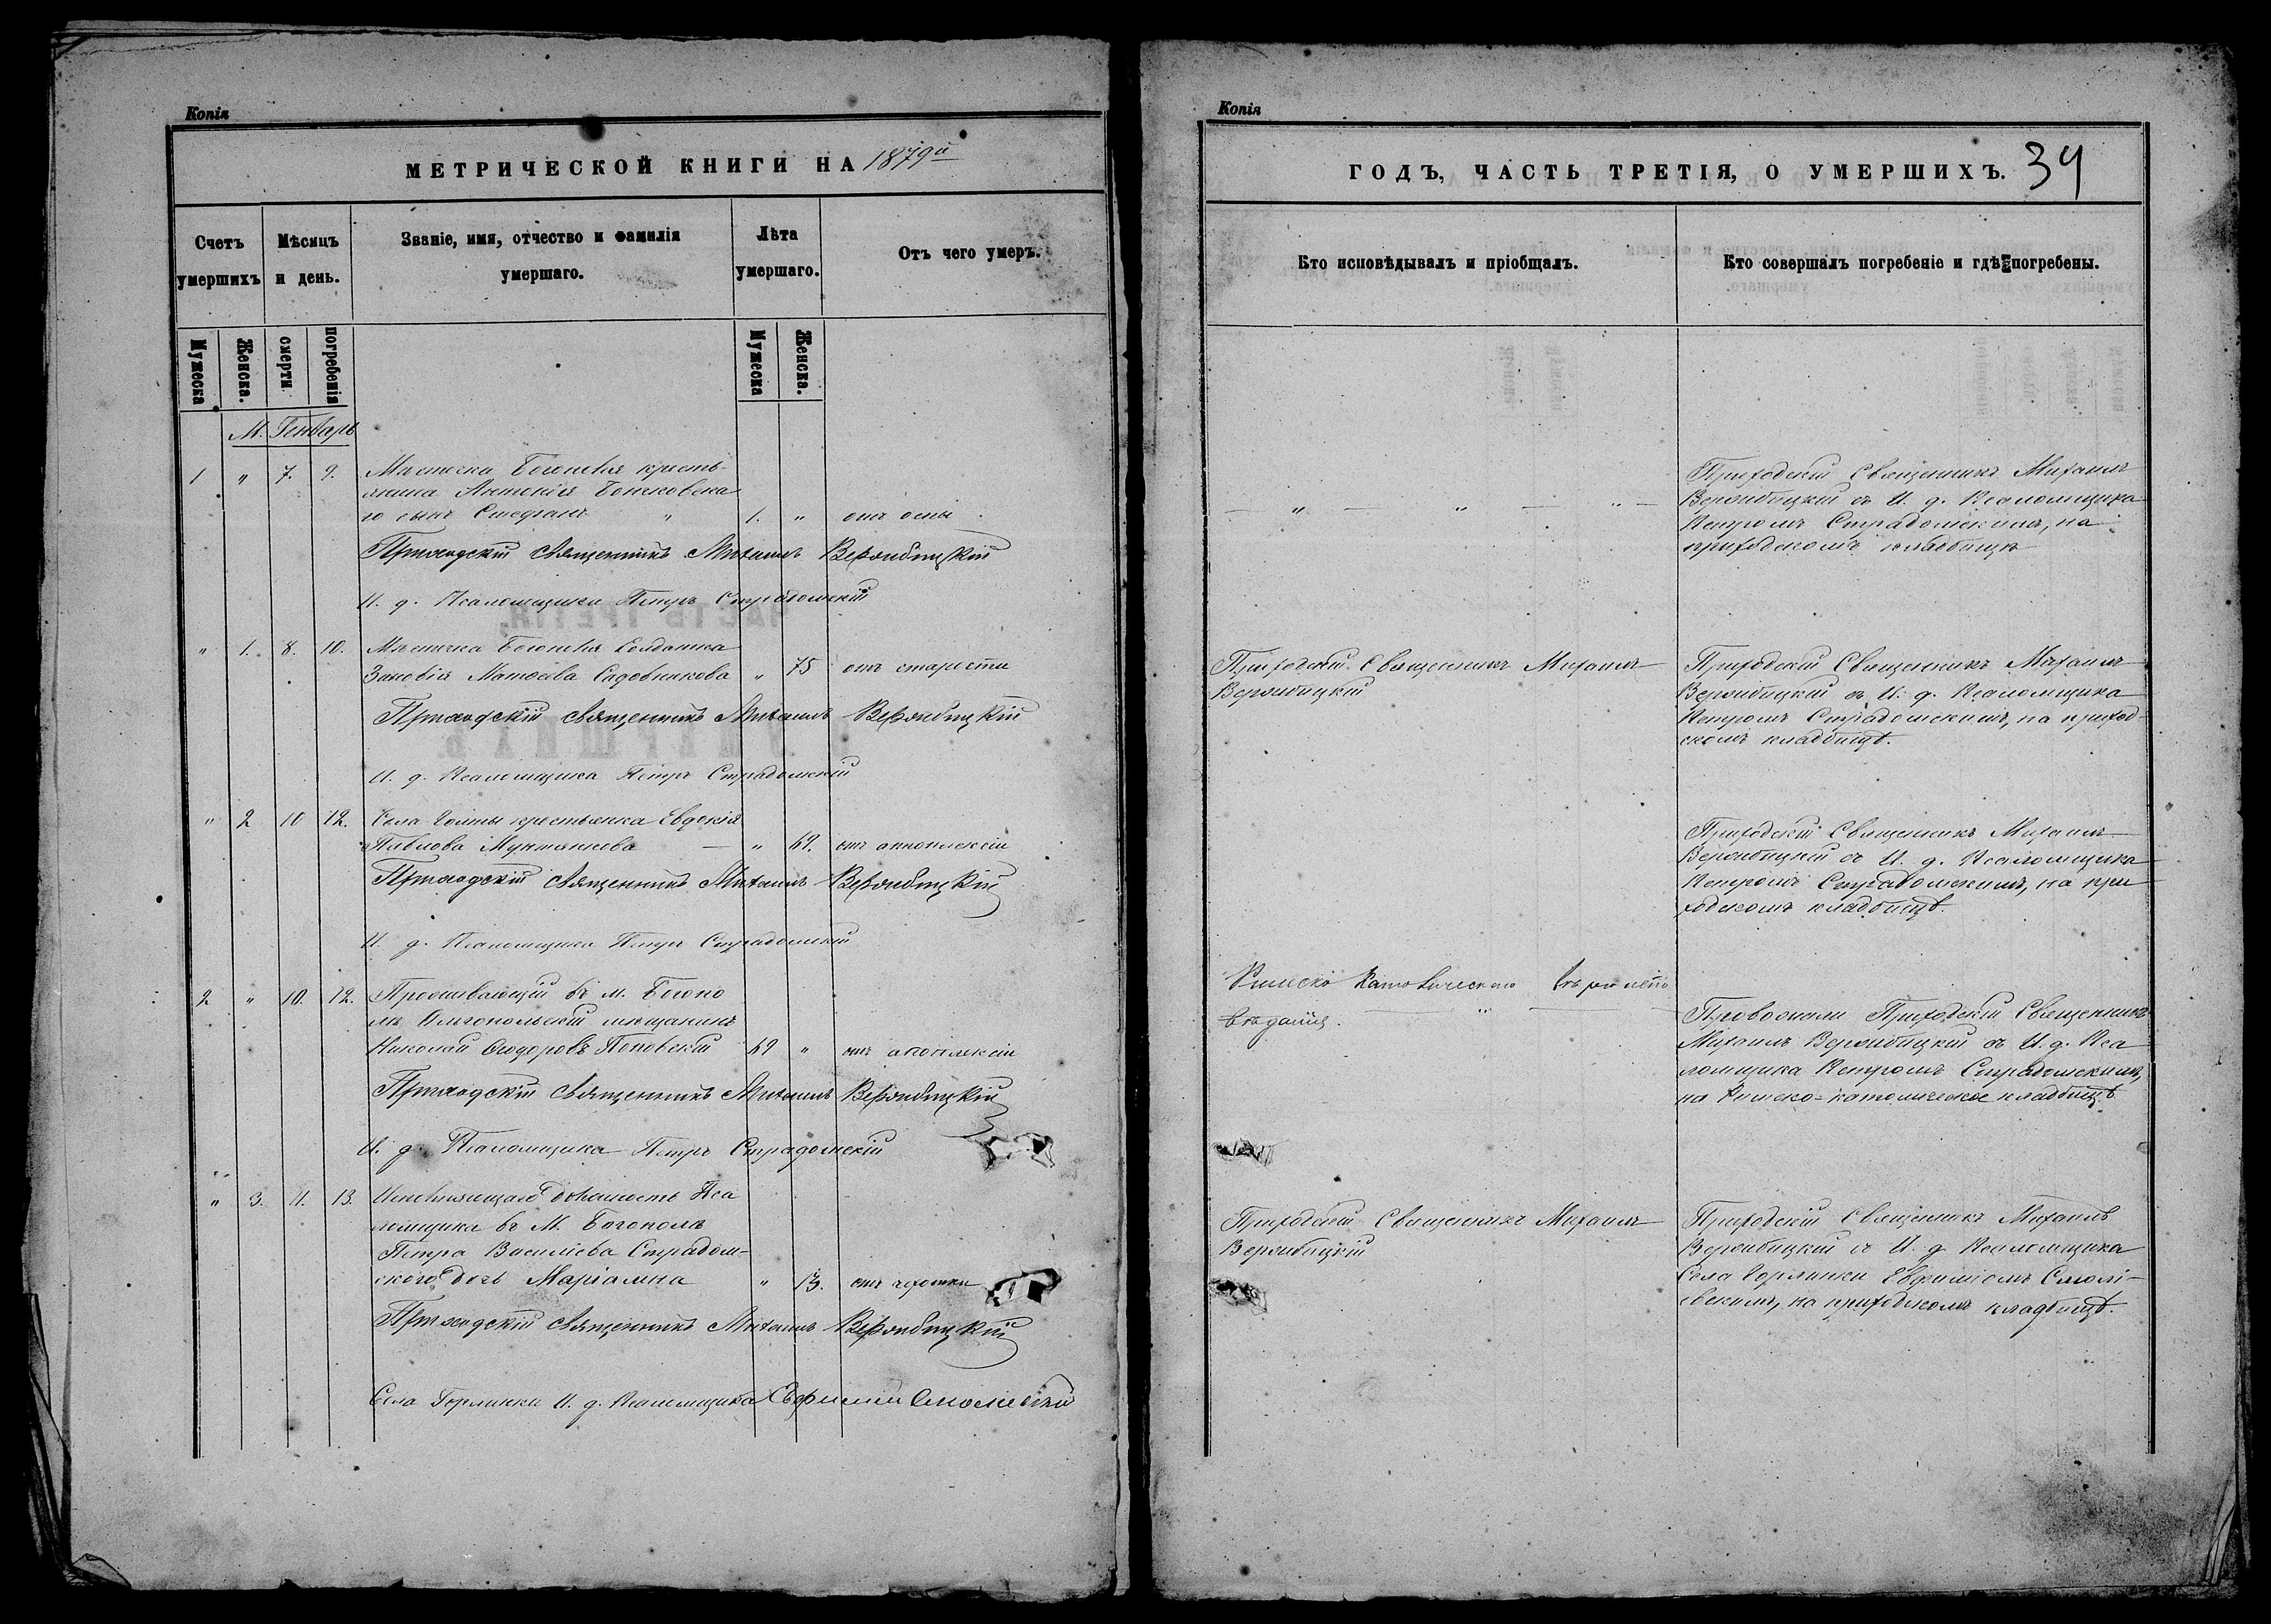 Копія
МЕТРИЧЕСКОЙ КНИГИ НА 1879й
Счетъ умершихъ
Мѣсяцъ и день.
Званіе, имя, отчество и фамилія умершаго.
Лѣта умершаго.
Отъ чего умеръ.
Мужеска
Женска.
смерти
погребенія
Мужеска
Женска.
М. Генварь
1 " 7. 9. Мѣстечка Богополя кресть-
янина Антонія
го сынъ Стефанъ " 1. " отъ оспы
Приходскій священникъ Михаилъ Вержбицкій
И. д. Псаломщика Петръ Страдомскій
" 1. 8. 10. Мѣстечка Богополя Солдатка
Зиновія Матѳеева Садовникова " 75 отъ старости
Приходскій священникъ Михаилъ Вержбицкій
И. д. Псаломщика Петръ Страдомскій
" 2 10 12. Села Голты крестьянка Евдокія
Павлова Мунтянова — " 69. отъ апоплексіи
Приходскій священникъ Михаилъ Вержбицкій
И. д. Псаломщика Петръ Страдомскій
2 " 10. 12. Проживающій въ м. Богопо
лѣ Ольгопольскій мѣщанинъ
Николай Ѳеодоровъ Поповскій 69 " отъ апоплексіи
Приходскій священникъ Михаилъ Вержбицкій
И. д. Псаломщика Петръ Страдомскій
" 3. 11. 13. Исправляющаго должность Пса
ломщика въ М. Богополѣ
Петра Василіева Страдом-
скаго дочь Маріамна " 13. отъ чахотки
Приходскій священникъ Михаилъ Вержбицкій
Села Горлинки И. д. Псаломщика Евфимій Смолевскій
Копія
ГОДЪ, ЧАСТЬ ТРЕТІЯ, О УМЕРШИХЪ. 34
Кто исповѣдывалъ и пріобщалъ.
Кто совершалъ погребеніе и гдѣ погребены.
— " — " — " —
Приходскій Священникъ Михаилъ
Вержбицкій съ И. д. Псаломщика
Петромъ Страдомскимъ, на
приходскомъ кладбищѣ
Приходскій Священникъ Михаилъ
Вержбицкій
Приходскій Священникъ Михаилъ
Вержбицкій съ И. д. Псаломщика
Петромъ Страдомскимъ, на приход-
скомъ кладбищѣ.
Приходскій Священникъ Михаилъ
Вержбицкій съ И. д. Псаломщика
Петромъ Страдомскимъ, на при
ходскомъ кладбищѣ.
Римско Католическаго вѣроиспо
вѣданія. — " —
Провожали Приходскій Священникъ
Михаилъ Вержбицкій съ И. д. Пса
ломщика Петромъ Страдомскимъ,
на Римско-католическое кладбищѣ
Приходскій Священникъ Михаилъ
Вержбицкій
Приходскій Священникъ Михаилъ
Вержбицкій съ И. д. Псаломщика
Села Горлинки Евфиміемъ Смолі-
евскимъ, на приходскомъ кладбищѣ.